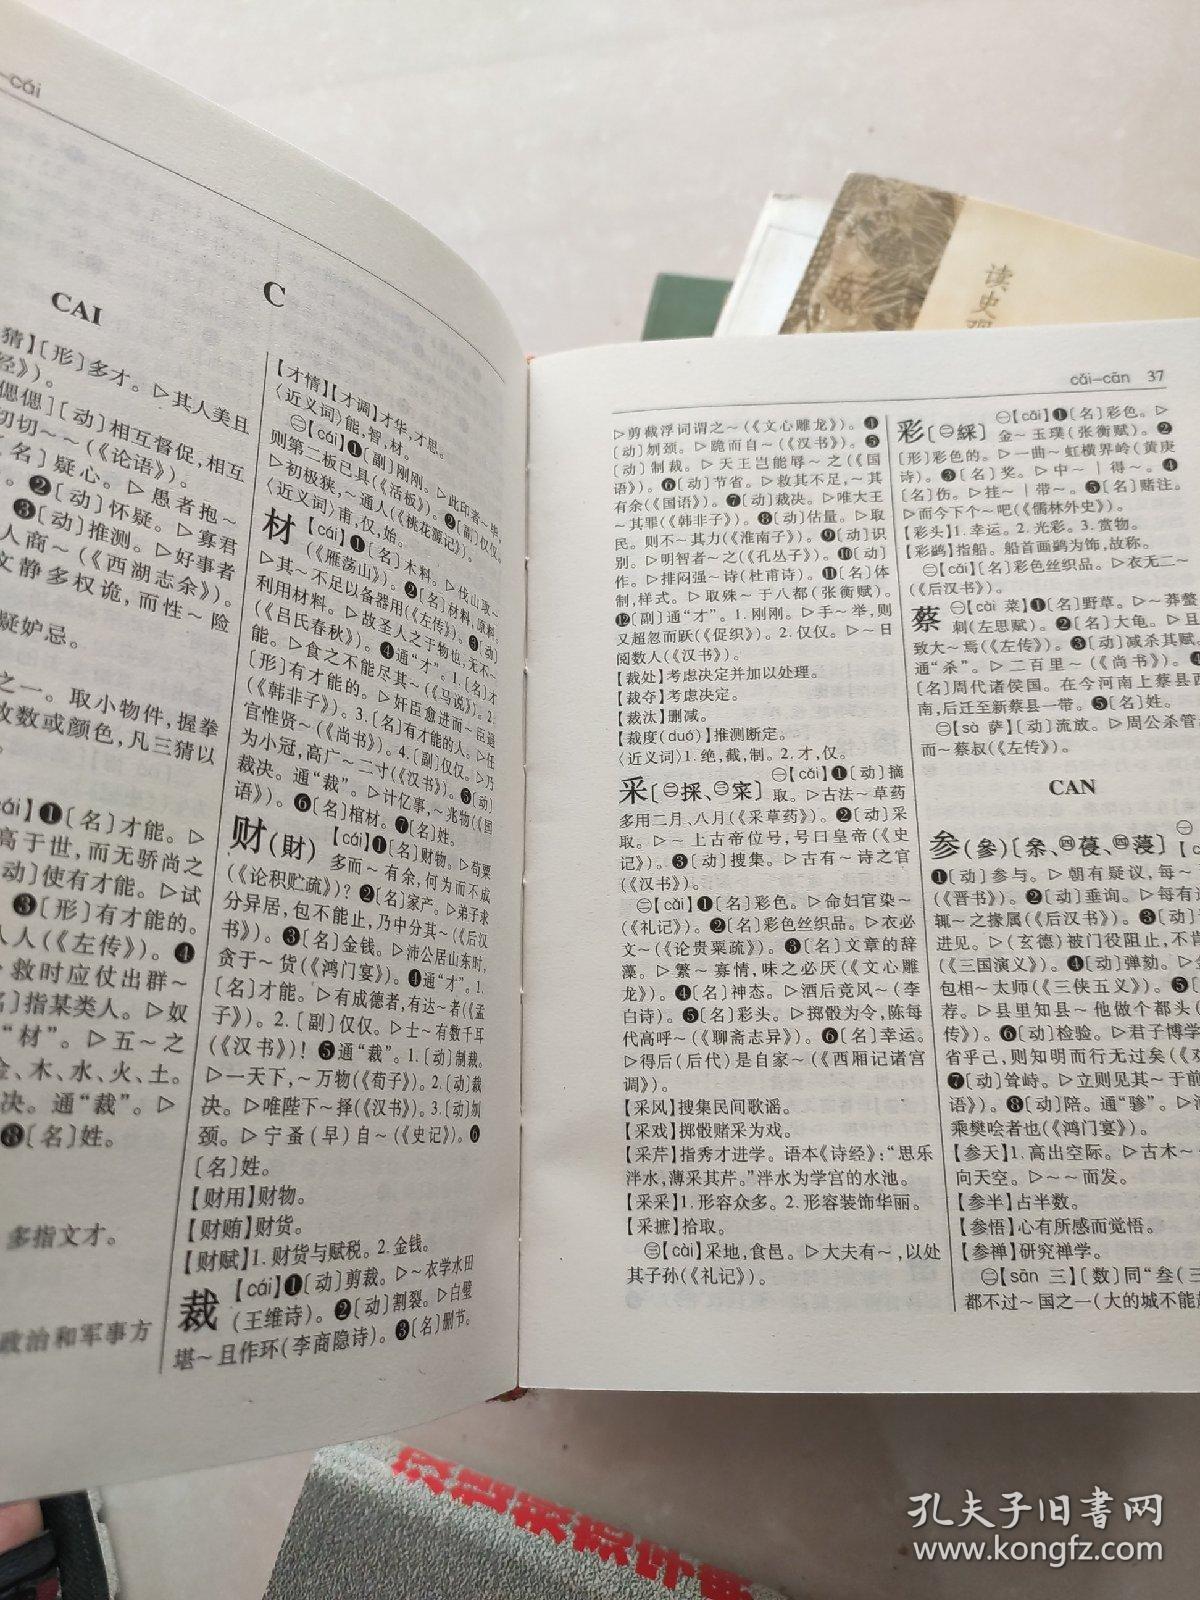 -cái
C
CAI
猜】〔形〕多才。▷其人美且
经》)。
偲偲】〔动〕相互督促,相互
切切~~(《论语》)。
名〕疑心。▷愚者抱~
。❷〔动〕怀疑。▷寡君
❸〔动〕推测。▷好事者
人商~(《西湖志余》)。
文静多权诡,而性~险
疑妒忌。
之一。取小物件,握拳
枚数或颜色,凡三猜以
cái】❶〔名〕才能。▷
高于世,而无骄尚之
动〕使有才能。▷试
❸〔形〕有才能的。
人人(《左传》)。❹
救时应仗出群~
名〕指某类人。▷奴
“材”。▷五~之
金、木、水、火、土。
决。通“裁”。▷
❽〔名〕姓。
多指文才。
政治和军事方
【才情】【才调】才华,才思。
〈近义词〉能,智,材。
㊁【cái】❶〔副〕刚刚。▷此印者~毕,
则第二板已具(《活板》)。❷〔副〕仅仅。
▷初极狭,~通人(《桃花源记》)。
〈近义词〉甫,仅,始。
材【cái】❶〔名〕木料。▷伐山取~
(《雁荡山》)。❷〔名〕材料,原料。
▷其~不足以备器用(《左传》)。❸〔动〕
利用材料。▷故圣人之于物也,无不~
(《吕氏春秋》)。❹通“才”。1.〔名〕才
能。▷食之不能尽其~(《马说》)。2.
〔形〕有才能的。▷奸臣愈进而~臣退
(《韩非子》)。3.〔名〕有才能的人。▷任
官惟贤~(《尚书》)。4.〔副〕仅仅。▷乃
为小冠,高广~二寸(《汉书》)。❺〔动〕
裁决。通“裁”。▷计亿事,~兆物(《国
语》)。❻〔名〕棺材。❼〔名〕姓。
财(財)【cái】❶〔名〕财物。▷苟粟
多而~有余,何为而不成
(《论积贮疏》)?❷〔名〕家产。▷弟子求
分异居,包不能止,乃中分其~(《后汉
书》)。❸〔名〕金钱。▷沛公居山东时,
贪于~货(《鸿门宴》)。❹通“才”。1.
〔名〕才能。▷有成德者,有达~者(《孟
子》)。2.〔副〕仅仅。▷士~有数千耳
(《汉书》)!❺通“裁”。1.〔动〕制裁。
▷一天下,~万物(《荀子》)。2.〔动〕裁
决。▷唯陛下~择(《汉书》)。3.〔动〕刎
颈。▷宁蚤(早)自~(《史记》)。❻
〔名〕姓。
【财用】财物。
【财贿】财货。
【财赋】1.财货与赋税。2.金钱。
裁【cái】❶〔动〕剪裁。▷~衣学水田
(王维诗)。❷〔动〕割裂。▷白璧
堪~且作环(李商隐诗)。❸〔名〕删节。
cǎi-cān 37
▷剪截浮词谓之~(《文心雕龙》)。❹
〔动〕刎颈。▷跪而自~(《汉书》)。❺
〔动〕制裁。▷天王岂能辱~之(《国
语》)。❻〔动〕节省。▷救其不足,~其
有余(《国语》)。❼〔动〕裁决。▷唯大王
~其罪(《韩非子》)。❽〔动〕估量。▷取
民。则不~其力(《淮南子》)。❾〔动〕识
别。▷明智者~之(《孔丛子》)。❿〔动〕
作。▷排闷强~诗(杜甫诗)。⓫〔名〕体
制,样式。▷取殊~于八都(张衡赋)。
⓬〔副〕通“才”。1.刚刚。▷手~举,则
又超忽而跃(《促织》)。2.仅仅。▷~日
阅数人(《汉书》)。
【裁处】考虑决定并加以处理。
【裁夺】考虑决定。
【裁汰】删减。
【裁度(duó)】推测断定。
〈近义词〉1.绝,截,制。2.才,仅。
采〔㊁採、㊂寀〕㊀【cǎi】❶〔动〕摘
取。▷古法~草药
多用二月、八月(《采草药》)。❷〔动〕采
取。▷~上古帝位号,号曰皇帝(《史
记》)。❸〔动〕搜集。▷古有~诗之官
(《汉书》)。
㊁【cǎi】❶〔名〕彩色。▷命妇官染~
(《礼记》)。❷〔名〕彩色丝织品。▷衣必
文~(《论贵粟疏》)。❸〔名〕文章的辞
藻。▷繁~寡情,味之必厌(《文心雕
龙》)。❹〔名〕神态。▷酒后竞风~(李
白诗)。❺〔名〕彩头。▷掷骰为令,陈每
代高呼~(《聊斋志异》)。❻〔名〕幸运。
▷得后(后代)是自家~(《西厢记诸宫
调》)。
【采风】搜集民间歌谣。
【采戏】掷骰赌采为戏。
【采芹】指秀才进学。语本《诗经》:“思乐
泮水,薄采其芹。”泮水为学宫的水池。
【采采】1.形容众多。2.形容装饰华丽。
【采摭】拾取。
㊂【cài】采地,食邑。▷大夫有~,以处
其子孙(《礼记》)。
彩〔㊁綵〕㊀【cǎi】❶〔名〕彩色。▷
金~玉璞(张衡赋)。❷
〔形〕彩色的。▷一曲~虹横界岭(黄庚
诗)。❸〔名〕奖。▷中~|得~。❹
〔名〕伤。▷挂~|带~。❺〔名〕赌注。
▷而今下个~吧(《儒林外史》)。
【彩头】1.幸运。2.光彩。3.赏物。
【彩鹢】指船。船首画鹢为饰,故称。
㊁【cǎi】〔名〕彩色丝织品。▷衣无二~
(《后汉书》)。
蔡㊀【cài 菜】❶〔名〕野草。▷~莽螫
刺(左思赋)。❷〔名〕大龟。▷且
致大~焉(《左传》)。❸〔动〕减杀其赋
通“杀”。▷二百里~(《尚书》)。❹
〔名〕周代诸侯国。在今河南上蔡县西
南,后迁至新蔡县一带。❺〔名〕姓。
㊁【sà 萨】〔动〕流放。▷周公杀管
而~蔡叔(《左传》)。
CAN
参(參)〔叅、㊃葠、㊃蓡〕㊀
❶〔动〕参与。▷朝有疑议,每~
(《晋书》)。❷〔动〕垂询。▷每有
辄~之掾属(《后汉书》)。❸〔动〕
进见。▷(玄德)被门役阻止,不肯
(《三国演义》)。❹〔动〕弹劾。▷
包相~太师(《三侠五义》)。❺
荐。▷县里知县~他做个都头(
传》)。❻〔动〕检验。▷君子博学
省乎己,则知明而行无过矣(《劝
❼〔动〕耸峙。▷立则见其~于前
语》)。❽〔动〕陪。通“骖”。▷
乘樊哙者也(《鸿门宴》)。
【参天】1.高出空际。▷古木~
向天空。▷~~而发。
【参半】占半数。
【参悟】心有所感而觉悟。
【参禅】研究禅学。
㊁【sān 三】〔数〕同“叁(三
都不过~国之一(大的城不能
读史观
孔夫子旧书网
www.kongfz.com